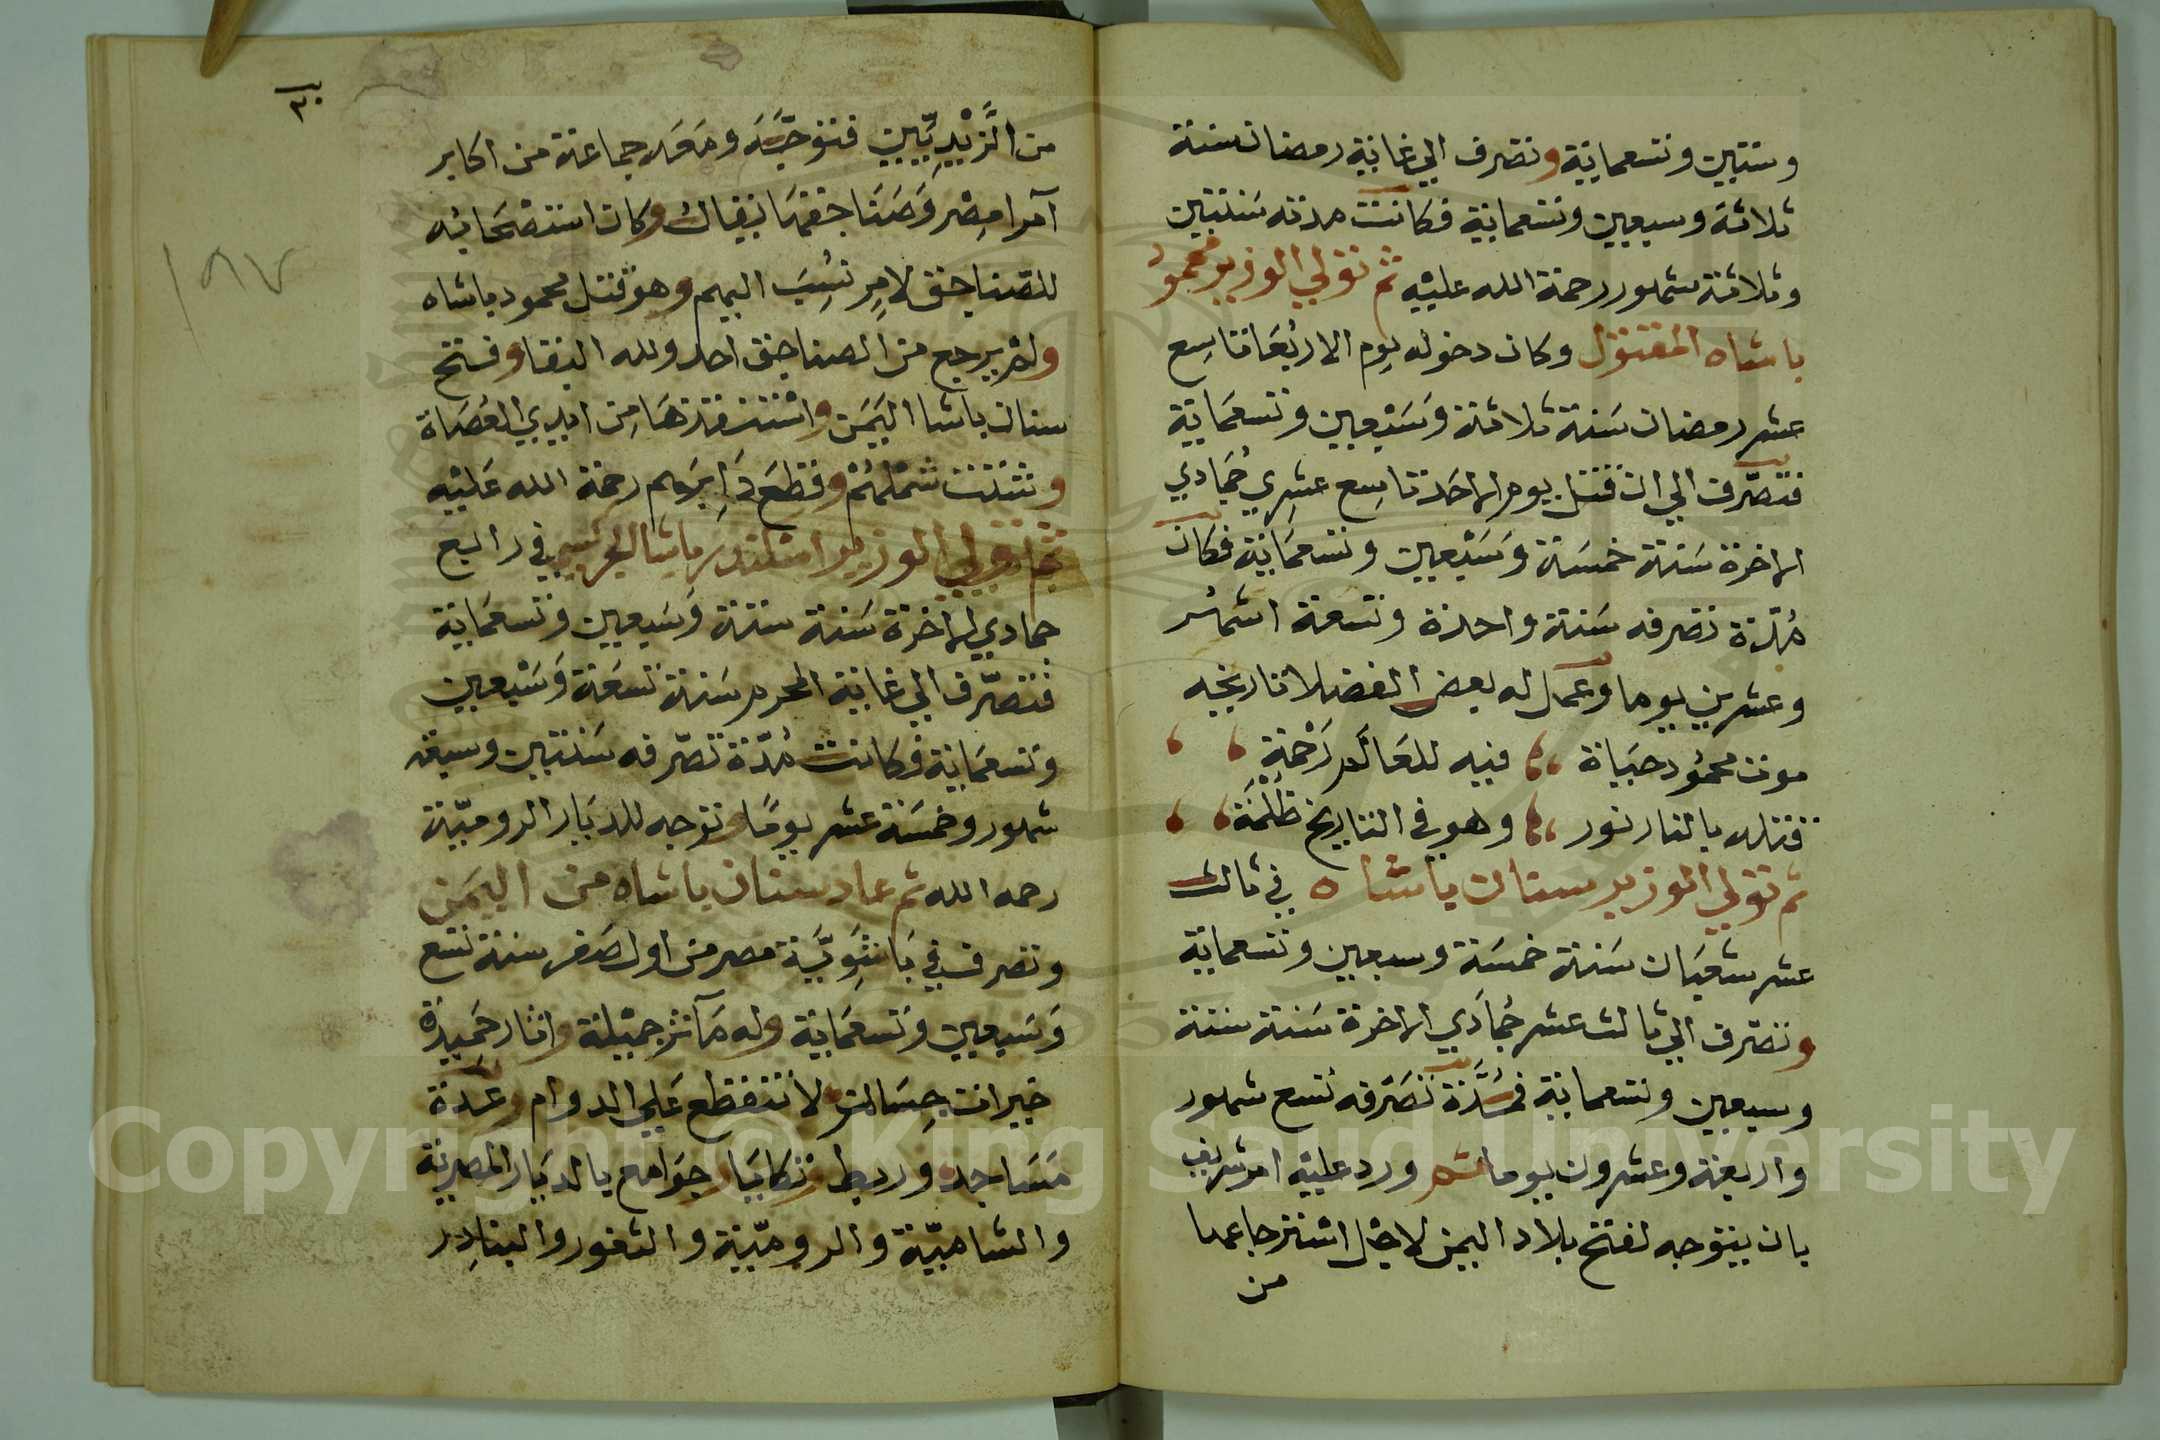 وستين وتسعماية وتصرف الي غاية رمضان سنة
ثلاثة وسبعين وتسعماية فكانت مدته سنتين
وثلاثة شهور رحمة الله عليه ثم تولي الوزير محمود
باشاه المقتول وكان دخوله يوم الاربعا تاسع
عشر رمضان سَنة ثلاثة وَسَبْعين وتسعمَاية
فتصّرف الي ان قتل يوم الاحَد تاسِع عشري جُمَادي
الاخرة سَنة خمسَة وَسَبْعين وتسعمَاية فكان
مُدّة تصرفه سَنة واحدة وتسعة اشهُر
وعشرين يوما وعمل له بعض الفضلا تاريخيه
موت محمُود حيَاة ، فيه للعَالَم رَحْمة ،
قتله بالنار نور ، وهو في التاريخ ظُلْمَة ،
ثم تولي الوزير سنان باشاه في ثالث
عشر شعبَان سَنة خمسَة وسبعين وتسعماية
وتصّرف الي ثالث عشر جُمَادَي الاخرة سَنة ستة
وسبعين وتسعماية فمُدَّة تصَرّفه تسع شهور
واربعة وعشرون يوما ثم ورد عليْه امر شريف
بان يتوجه لفتح بلاد اليمن لاجْل اسْترجاعها
من
٣٠
من الزَّيْدِيِّين فتوَجَّهَ ومَعَه جماعة من اكابر
آمرا مِصْر وَصَنَاجقهَا بنيّاك وكان استصْحَابُه
للصّنَاجق لامِر نُسِبَ اليهم وهو قتل محمود باشاه
ولم يرجع من الصناجق احد ولله البقا وفتح
سنان باشا اليَمَن واستنقذهَا مِن ايدِي العُصَاة
وشتت شمْلهُمْ وقطعَ دَابِرَهم رحمة الله عَليْه
ثم تولي الوزير اسكندر باشا الجركسي في رابع
جمادي الاخرة سَنة ستة وَسَبعين وتسعمَاية
فتصّرف الي غاية المحرم سَنة تسعَة وَسَبْعين
وتسعمَاية فكانت مُدّة تصّرفه سَنتين وسبعة
شهور وخمسَة عشر يومًا وتوجه للديَار الروميّة
رحمه الله ثم عاد سنان باشاه من اليمَن
وتصرف في بَاشَوِيَّة مصر من اول صَفر سنة تسع
وَسَبعين وَتسعمَاية وله مَآثر جميْلة واثار حَميدة
خيرات حِسَان لا تنقطع عَلي الدوام وعدة
مَسَاجد وربط وتكايَا وجوَامع بالديَار المصريّة
والشاميّة والروميّة والثغور والبنادِر
١٨٧
Copyright © King Saud University